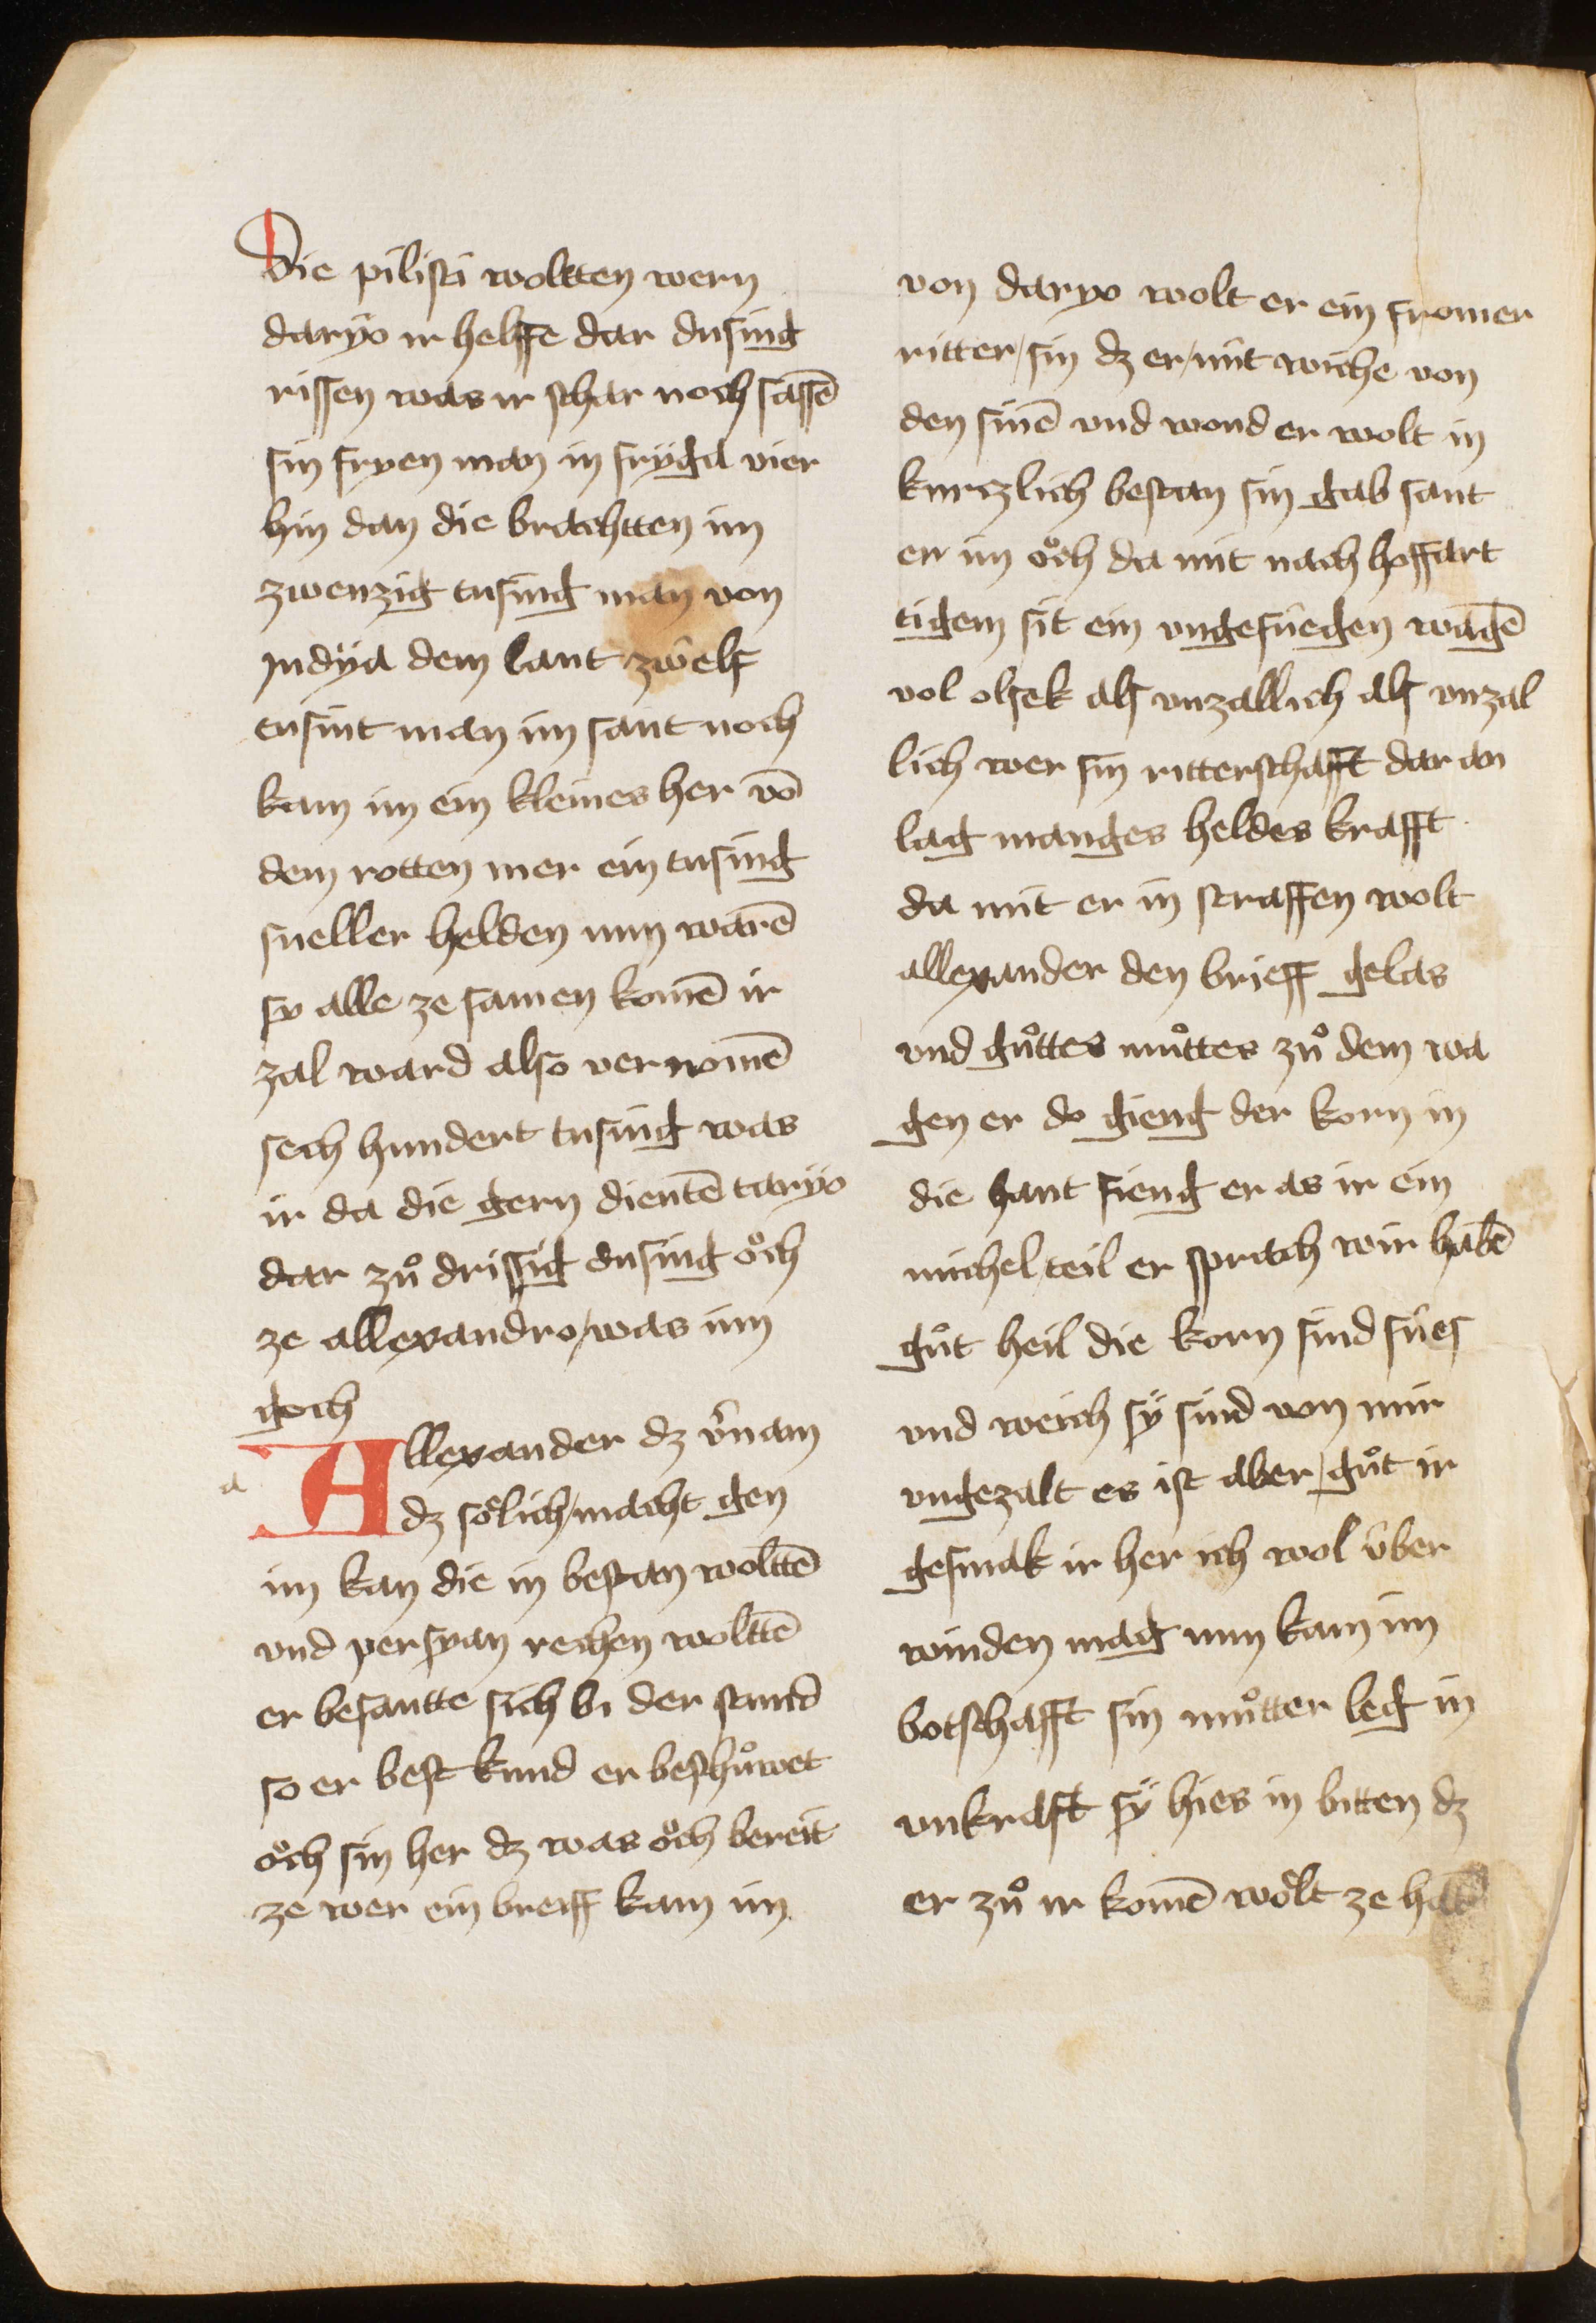 Die pilisti woltten wern
daryo ir helffe dar dusing
rissen was ir schar noch sassē
sin fryen man in fryga vier
hin dan die brachtten im
zwenzig tusing man von
Jndÿa dem lant zwelf
tusint man im sant noch
kam im ein kleines her vō
dem rotten mer ein tusing
sneller helden nun warē
sy alle ze samen komē ir
zal ward also vernomē
sech hundert tusing was
ir da die gern dientē taryo
dar zuͦ drissig dusing oͤch
ze allexandro was im
goch
a
Allexander dz v̄nam
dz soͤlich macht gen
im kan die in bestan woltē
vnd persyan rechen woltē
er besantte sich bi der stund
so er best kund er beschuͦwet
oͤch sin her dz was oͤch bereit
ze wer ein breiff kam im
von daryo wolt er ein fromer
ritter sin dz er nüt wiche von
den sinē vnd wond er wolt in
kurczlich bestan sin gab sant
er im oͤch da mit nach hoffart
tigem sit ein vngefuegen wagē
vol olsek als vnzallich als vnzal
lich wer sin ritterschafft dar an
lag manges heldes krafft
da mit er in straffen wolt
allexander den brieff gelas
vnd guͦttes muͦttes zuͦ dem wa
gen er do gieng der korn in
die hant fieng er as ir ein
michel teil er sprach wir habē
guͦt heil die korn sind sues
vnd weich sÿ sind von mir
vngezalt es ist aber guͦt ir
gesmak ir her ich wol über
winden mag nun kam im
botschafft sin muͦtter leg in
vnkraft sÿ hies in bitten dz
er zuͦ ir komē woͤlt ze